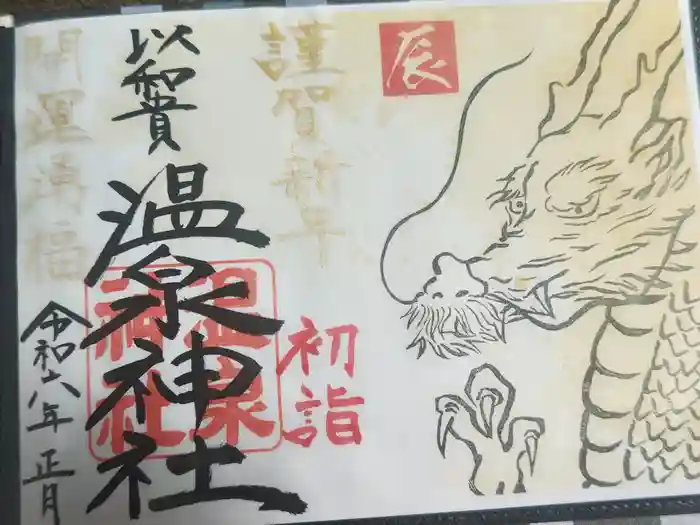 辰
謹賀新年
初詣
以和貴
温泉神社
温泉
神社
開運湧福
令和六年 正月